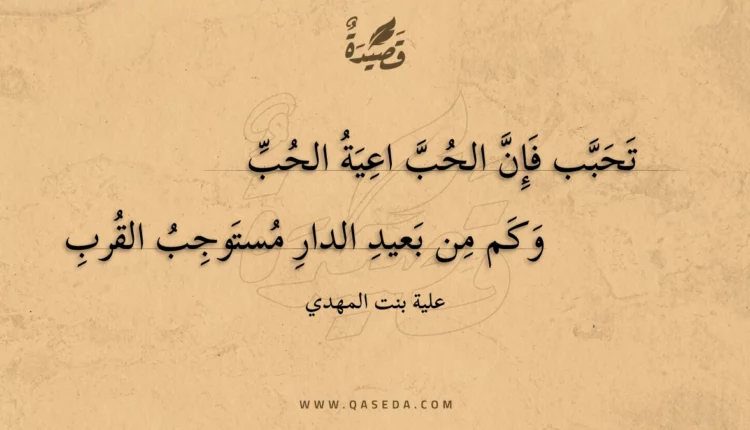 قَصِيدَةٌ
تَحَبَّب فَإِنَّ الحُبَّ اعِيَةُ الحُبِّ
وَكَم مِن بَعيدِ الدارِ مُستَوجِبُ القُربِ
علية بنت المهدي
WWW.QASEDA.COM